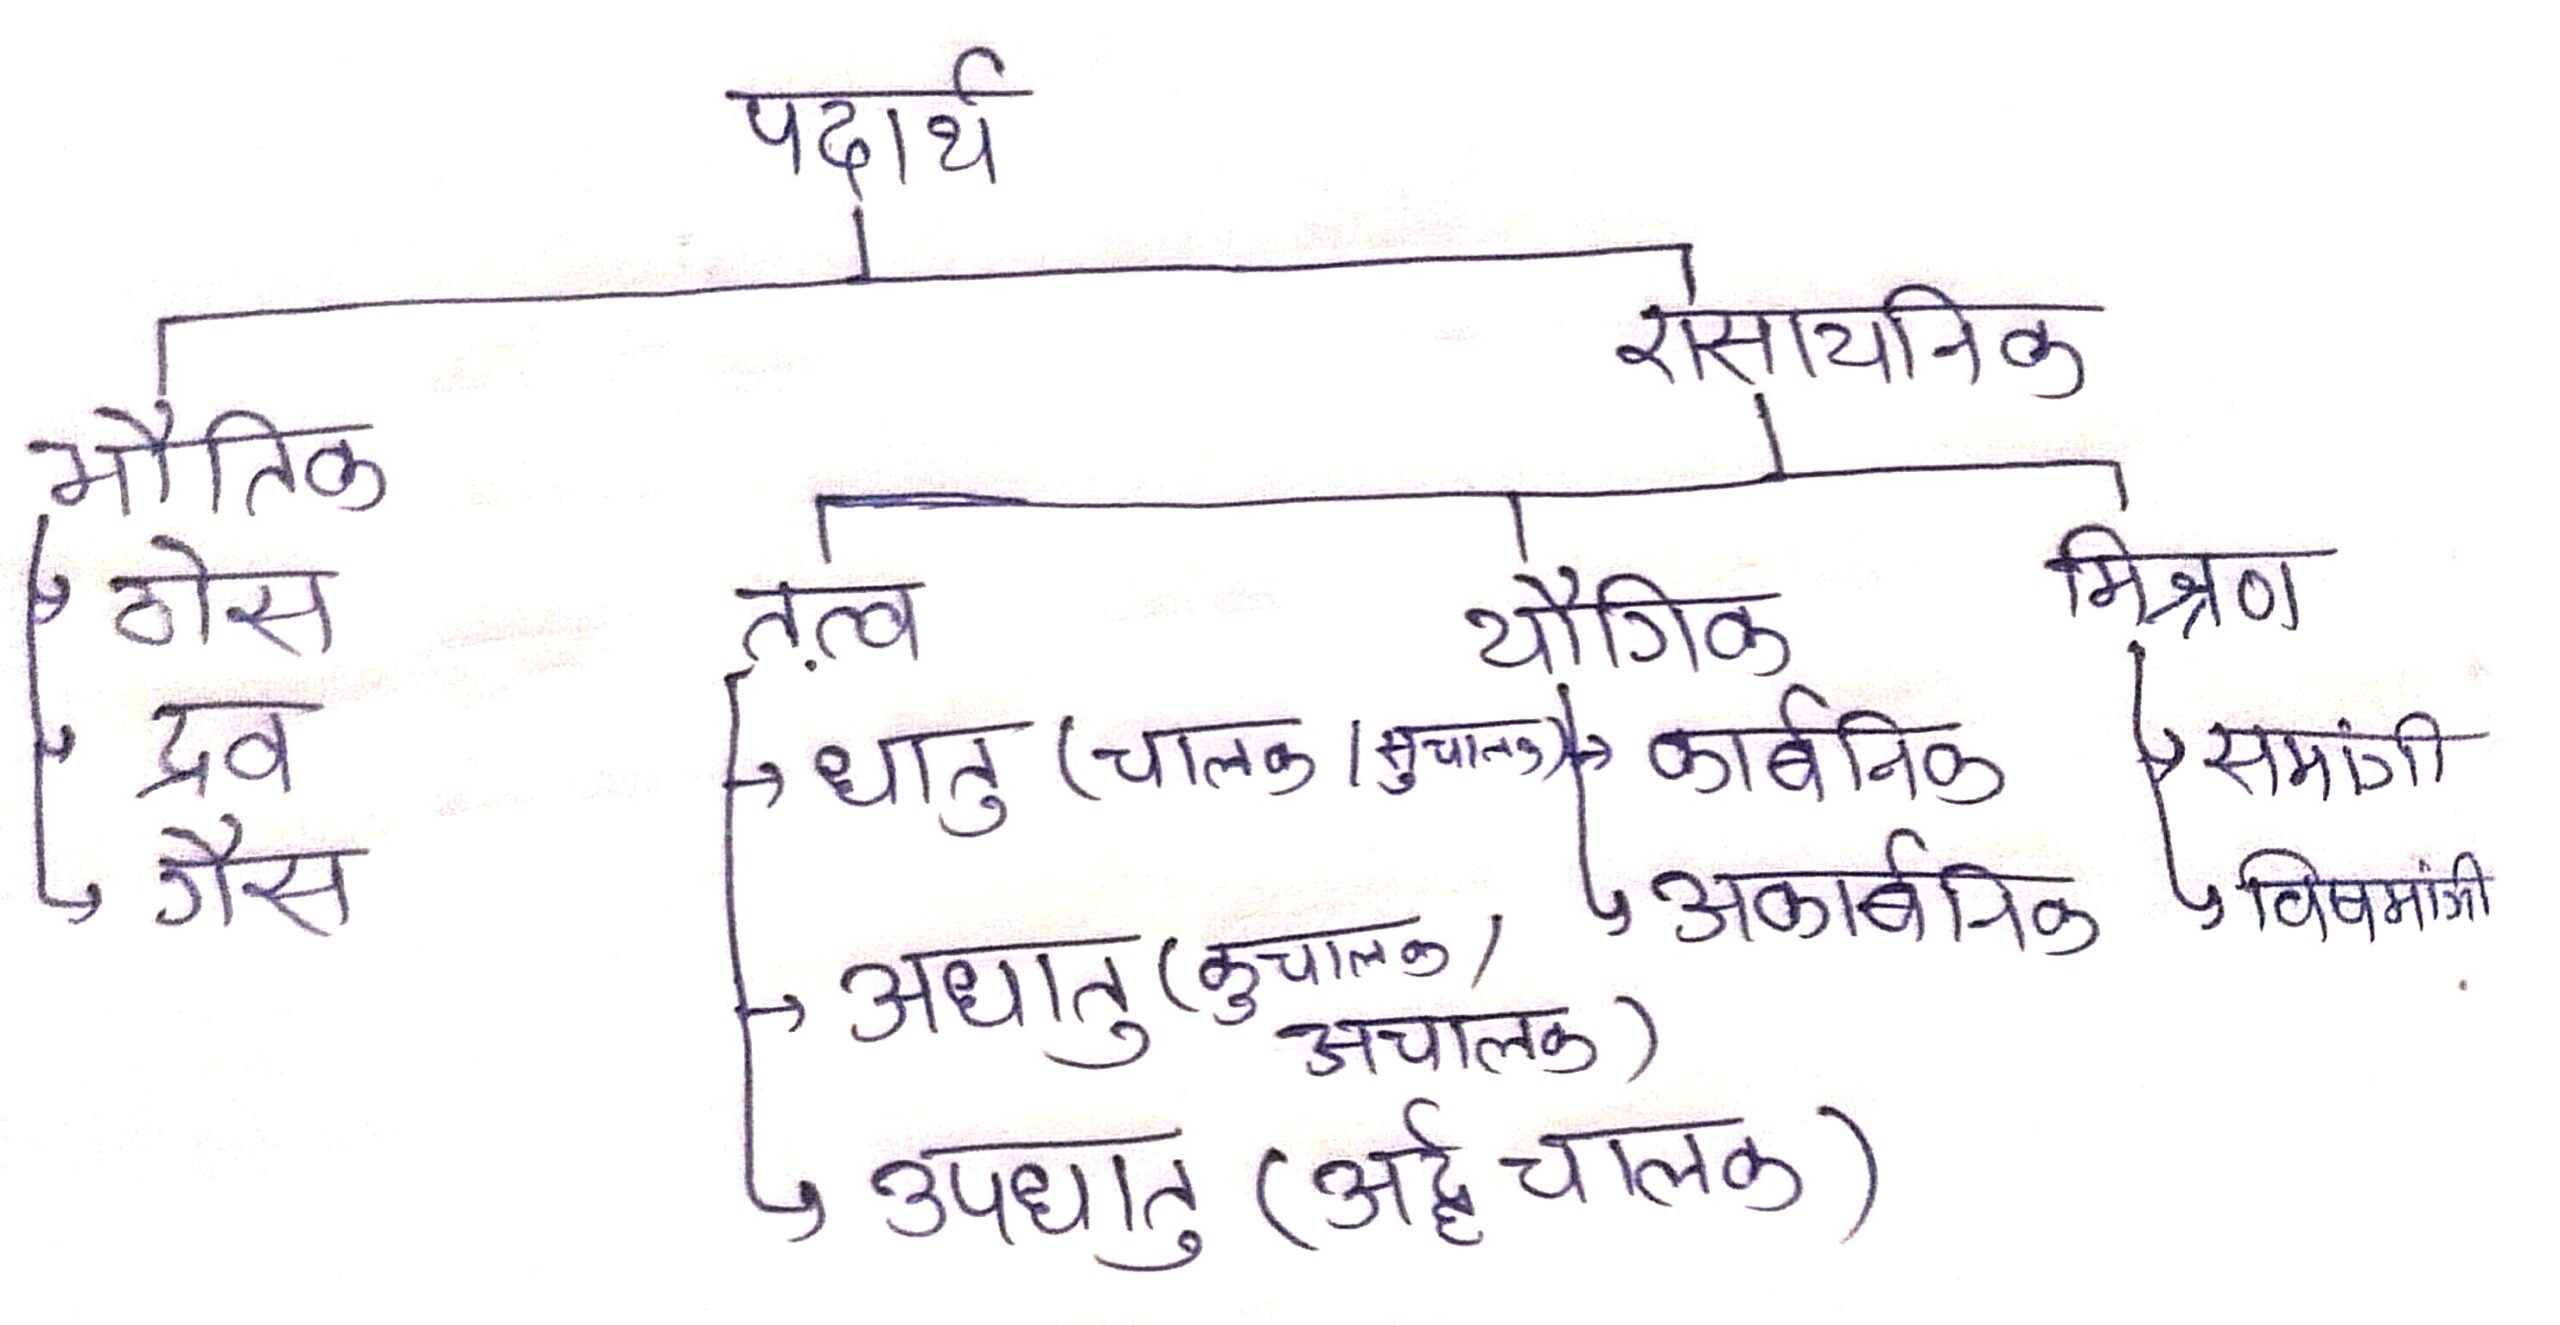 पदार्थ
रासायनिक
भौतिक
ठोस
द्रव
गैस
तत्व
धातु (चालक / सुचालक)
अधातु (कुचालक /
अचालक)
उपधातु (अर्द्ध चालक)
यौगिक
कार्बनिक
अकार्बनिक
मिश्रण
समांगी
विषमांगी